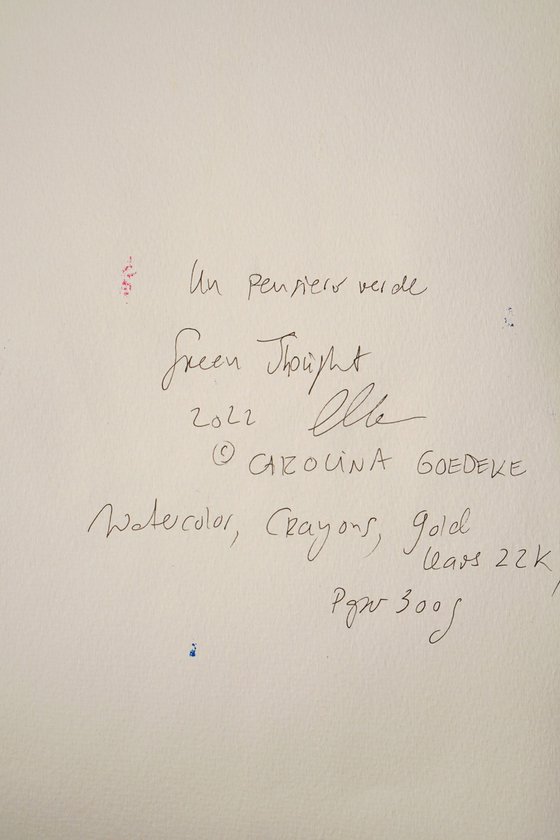 Un pensiero verde
Green Thought
2022
© CAROLINA GOEDEKE
Watercolor, Crayons, gold
leavs 22K,
300g